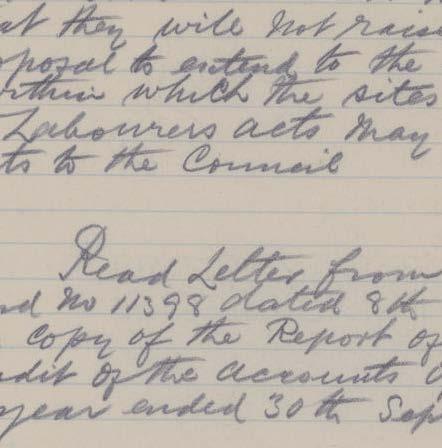 at they will not raise
oposal to extend to the
within which the sites
Labourers acts may
ts to the Council
Read Letter from
rd No 11398 dated 8th
copy of the Report of
udit of the accounts o
year ended 30th Sep